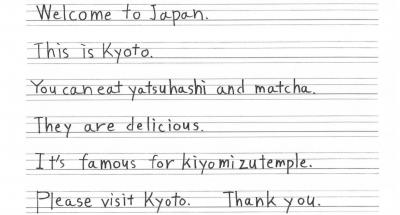 Welcome to Japan.
This is Kyoto.
You can eat yatsuhashi and matcha.
They are delicious.
It's famous for kiyomizutemple.
Please visit Kyoto. Thank you.